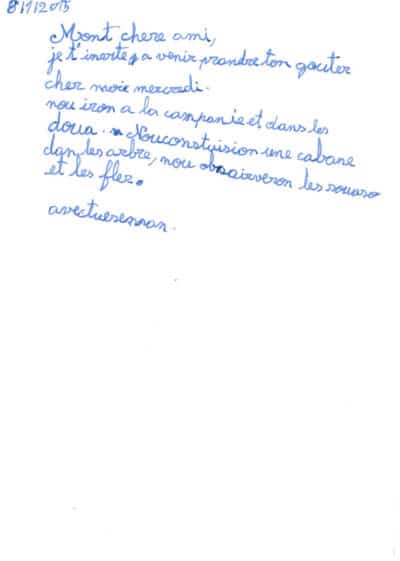 8/1/2015
Mont chere ami,
je t'invite a venir prandre ton gouter
cher moie mercredi.
nou iron a la campanie et dans les
doua. Nouconstuision une cabane
dan les arbre, nou obsairveron les souaso
et les fler.